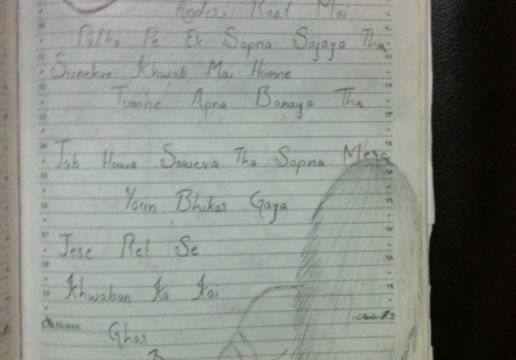 Anderi Raat Mai
Palko Pe Ek Sapna Sajaya Tha
Sunehre Khwab Mai Humne
Tumhe Apna Banaya Tha
Jab Huwa Sawera Tha Sapna Mera
Youn Bhikar Gaya
Jese Ret Se
Khwaban Ka Koi
Notes:
Ghar